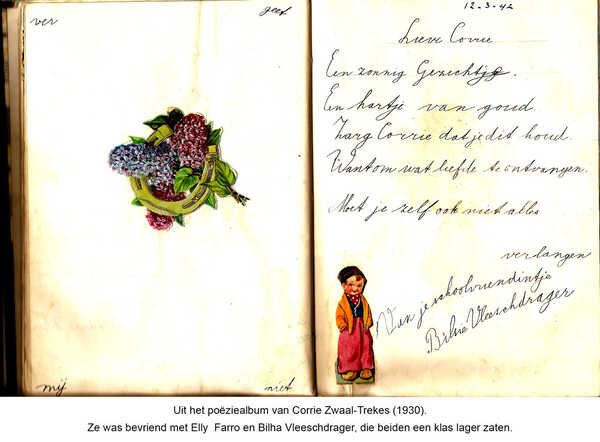 ver
geet
mij
niet
12-3-42
Lieve Corrie
Een zonnig Gezichtje.
Een hartje van goud.
Zarg Corrie dat je dit houd.
Want om wat liefde te ontvangen.
Moet je zelf ook niet alles
verlangen
Van je schoolvriendintje
Bilha Vleeschdrager
Uit het poëziealbum van Corrie Zwaal-Trekes (1930).
Ze was bevriend met Elly Farro en Bilha Vleeschdrager, die beiden een klas lager zaten.